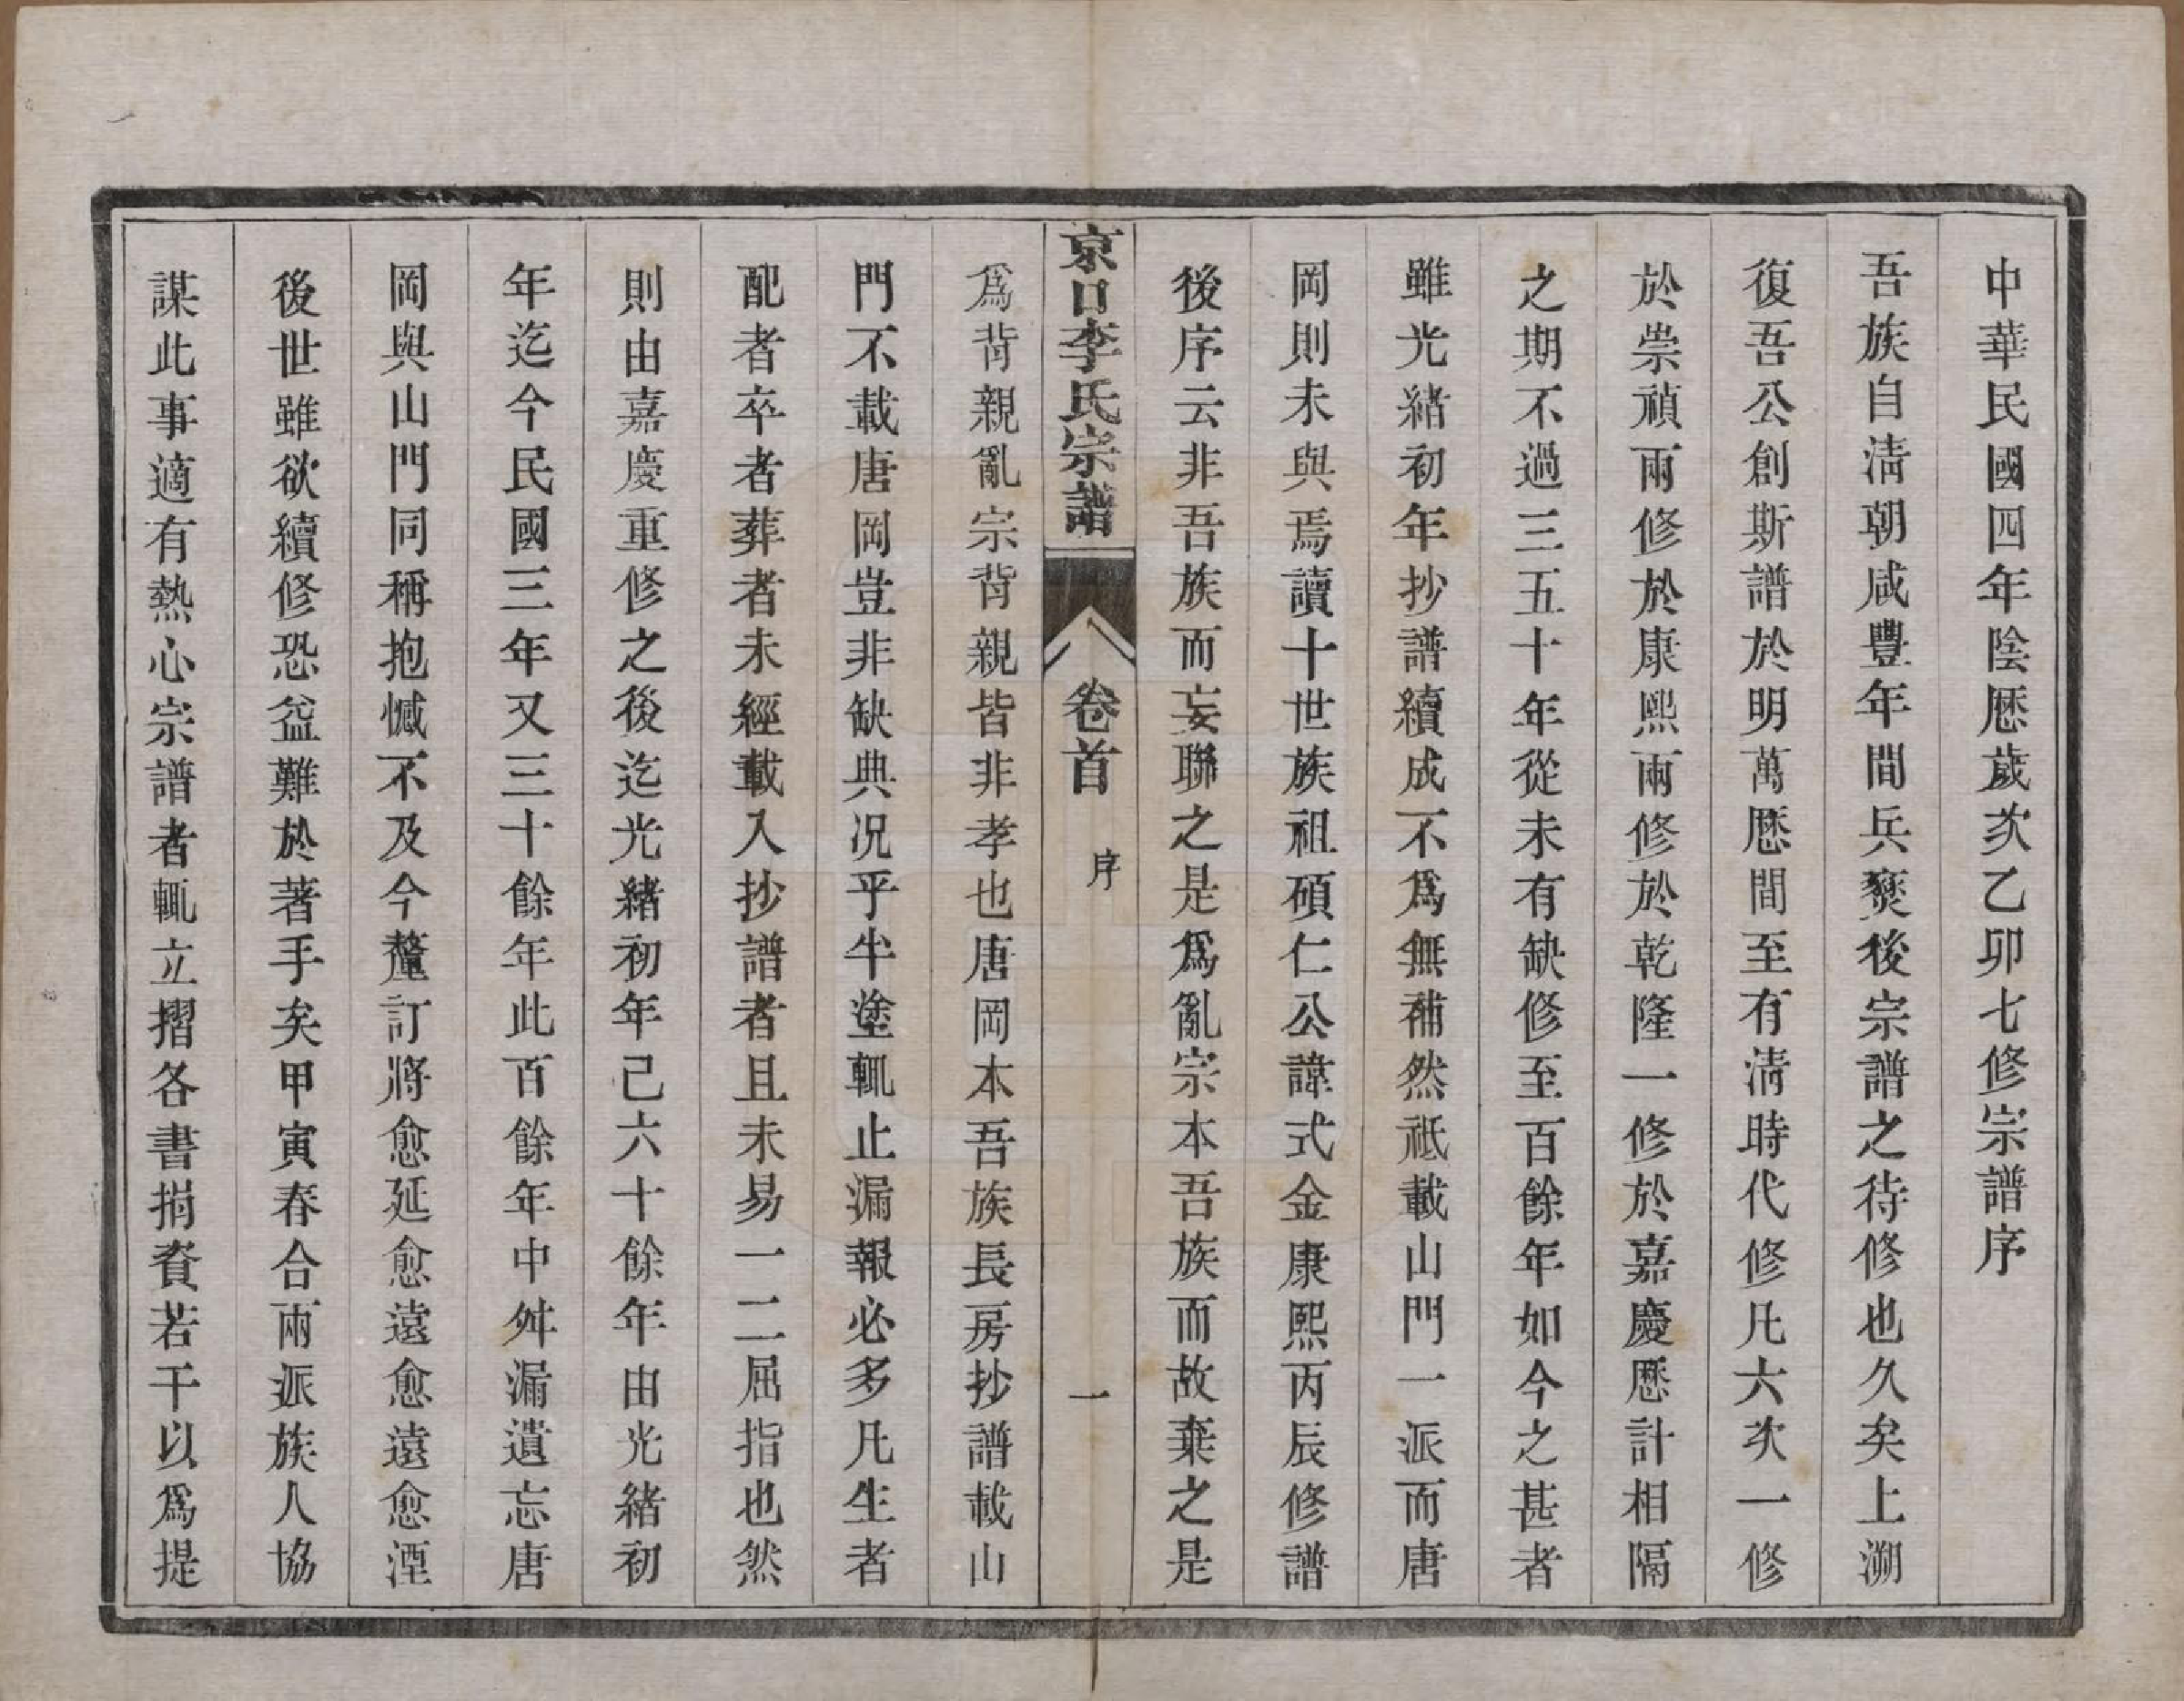 中華民國四年陰歷歲次乙卯七修宗譜序
吾族自清朝咸豐年間兵燹後宗譜之待修也久矣上溯
復吾公創斯譜於明萬歷間至有清時代修凡六次一修
於崇禎兩修於康熙兩修於乾隆一修於嘉慶歷計相隔
之期不過三五十年從未有缺修至百餘年如今之甚者
雖光緒初年抄譜續成不爲無補然祗載山門一派而唐
岡則未與焉讀十世族祖碩仁公諱式金康熙丙辰修譜
後序云非吾族而妄聯之是爲亂宗本吾族而故棄之是
京口李氏宗譜 卷首 序 一
爲背親亂宗背親皆非孝也唐岡本吾族長房抄譜載山
門不載唐岡豈非缺典况乎半塗輒止漏報必多凡生者
配者卒者葬者未經載入抄譜者且未易一二屈指也然
則由嘉慶重修之後迄光緒初年己六十餘年由光緒初
年迄今民國三年又三十餘年此百餘年中舛漏遺忘唐
岡與山門同稱抱憾不及今釐訂將愈延愈遠愈遠愈湮
後世雖欲續修恐益難於著手矣甲寅春合兩派族人協
謀此事適有熱心宗譜者輒立摺各書捐資若干以爲提